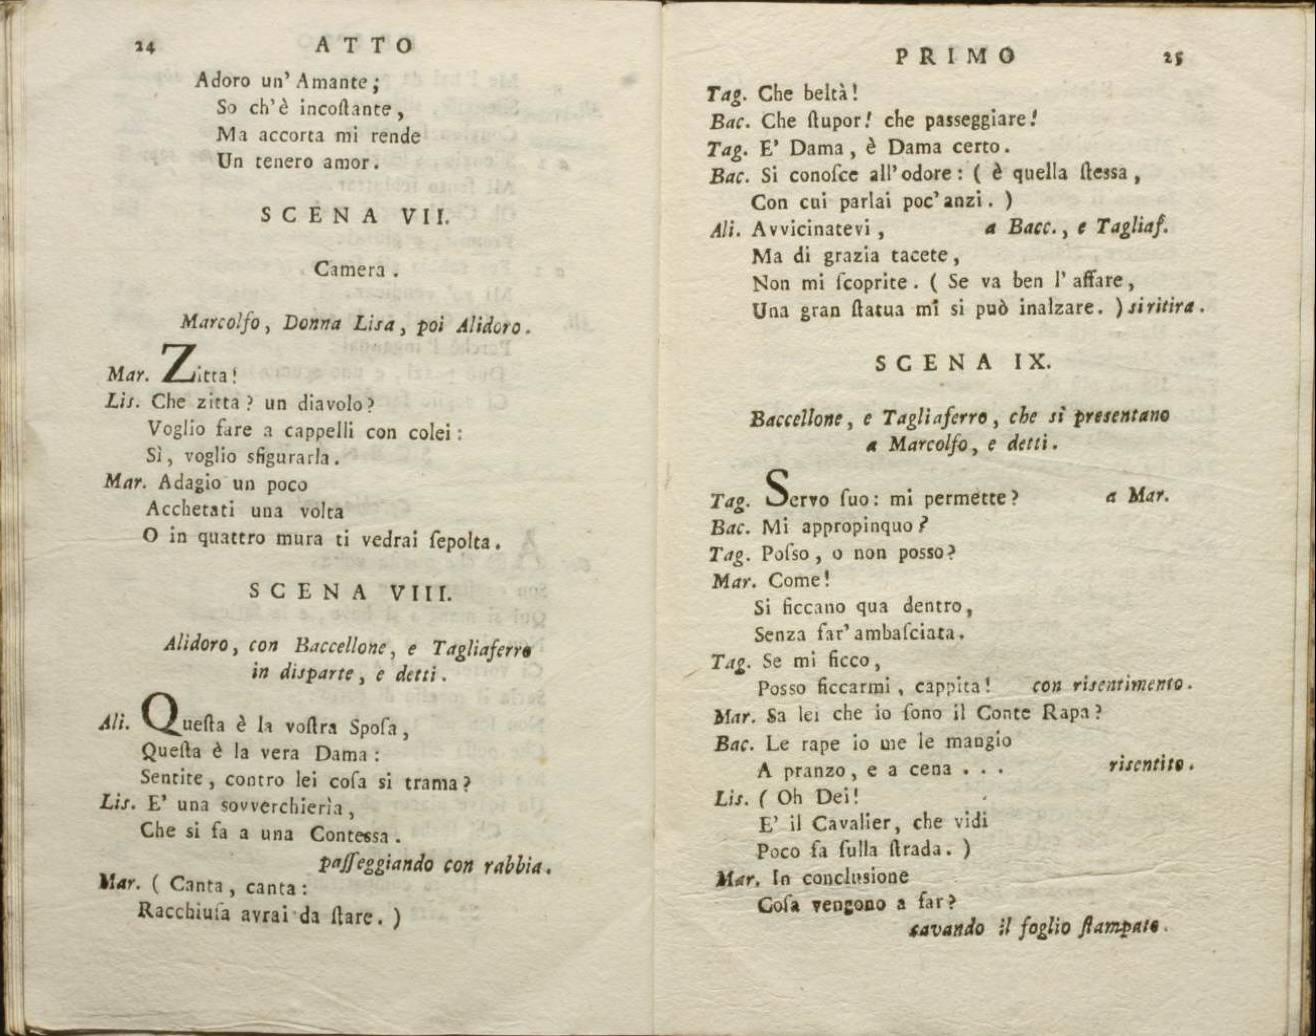 24 ATTO
Adoro un' Amante;
So ch'è incoſtante,
Ma accorta mi rende
Un tenero amor.
SCENA VII.
Camera.
Marcolfo, Donna Lisa, poi Alidoro.
Mar. Zitta!
Lis. Che zitta? un diavolo?
Voglio fare a cappelli con colei:
Sì, voglio sfigurarla.
Mar. Adagio un poco
Acchetati una volta
O in quattro mura ti vedrai ſepolta.
SCENA VIII.
Alidoro, con Baccellone, e Tagliaferro
in disparte, e detti.
Ali. Queſta è la voſtra Spoſa,
Queſta è la vera Dama:
Sentite, contro lei coſa si trama?
Lis. E' una sovverchierìa,
Che si fa a una Contessa.
paſſeggiando con rabbia.
Mar. ( Canta, canta:
Racchiuſa avrai da ſtare. )
PRIMO 25
Tag. Che beltà!
Bac. Che ſtupor! che passeggiare!
Tag. E' Dama, è Dama certo.
Bac. Si conoſce all'odore: ( è quella ſtessa,
Con cui parlai poc'anzi. )
Ali. Avvicinatevi, a Bacc., e Tagliaf.
Ma di grazia tacete,
Non mi ſcoprite. ( Se va ben l'affare,
Una gran ſtatua mi si può inalzare. ) si ritira.
SCENA IX.
Baccellone, e Tagliaferro, che si presentano
a Marcolfo, e detti.
Tag. Servo ſuo: mi permette? a Mar.
Bac. Mi appropinquo?
Tag. Poſso, o non posso?
Mar. Come!
Si ficcano qua dentro,
Senza far' ambaſciata.
Tag. Se mi ficco,
Posso ficcarmi, cappita! con risentimento.
Mar. Sa lei che io ſono il Conte Rapa?
Bac. Le rape io me le mangio
A pranzo, e a cena . . . risentito.
Lis. ( Oh Dei!
E' il Cavalier, che vidi
Poco fa ſulla ſtrada. )
Mar. In conclusione
Coſa vengono a far?
cavando il foglio ſtampato.